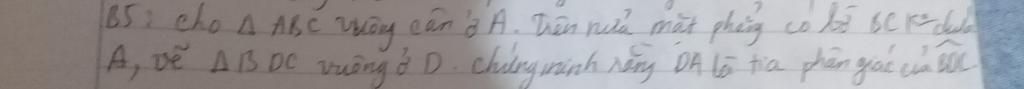 B5: cho Δ ABC vuông cân ở A. Trên nửa mặt phẳng có bờ BC K² chứa
A, vẽ ΔBDC vuông ở D. chứng minh rằng DA là tia phân giác của BDC